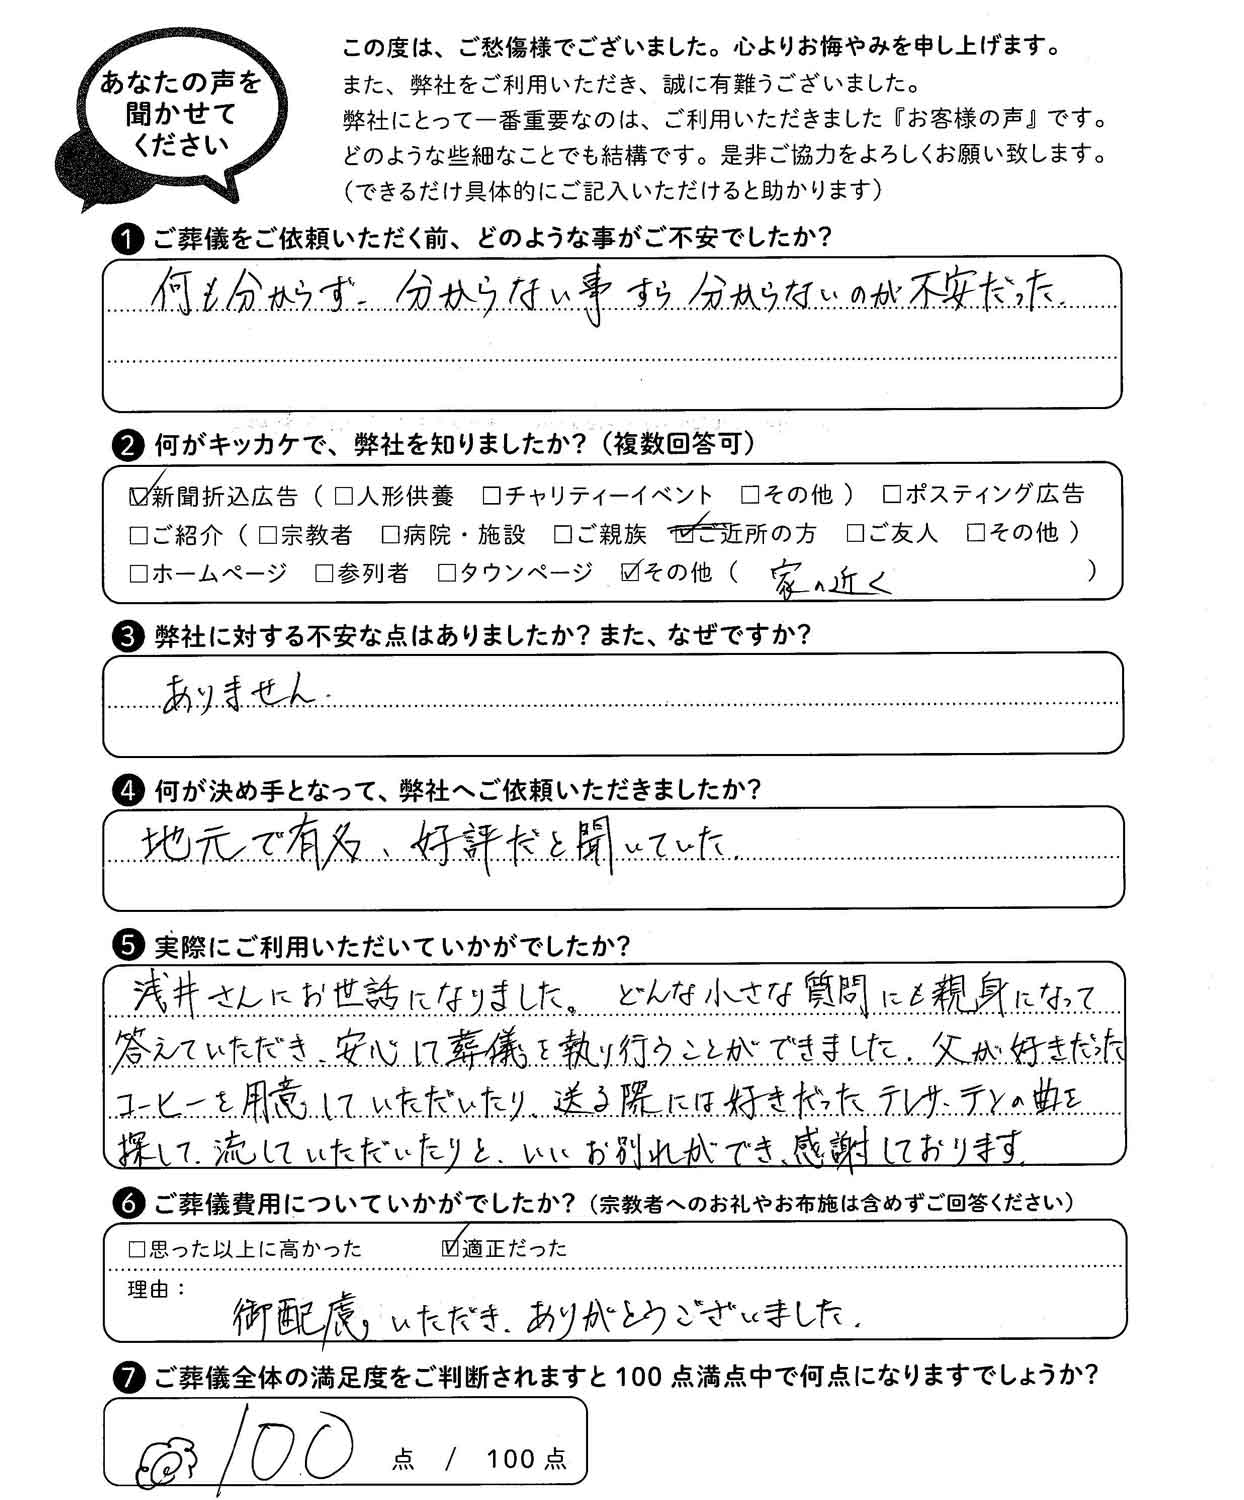 あなたの声を
聞かせて
ください
この度は、ご愁傷様でございました。心よりお悔やみを申し上げます。
また、弊社をご利用いただき、誠に有難うございました。
弊社にとって一番重要なのは、ご利用いただきました『お客様の声』です。
どのような些細なことでも結構です。是非ご協力をよろしくお願い致します。
（できるだけ具体的にご記入いただけると助かります）
❶ ご葬儀をご依頼いただく前、どのような事がご不安でしたか？
何も分からず、分からない事すら分からないのが不安だった。
❷ 何がキッカケで、弊社を知りましたか？（複数回答可）
☑新聞折込広告（□人形供養 □チャリティーイベント □その他） □ポスティング広告
□ご紹介（□宗教者 □病院・施設 □ご親族 ☑ご近所の方 □ご友人 □その他）
□ホームページ □参列者 □タウンページ ☑その他（ 家の近く ）
❸ 弊社に対する不安な点はありましたか？また、なぜですか？
ありません。
❹ 何が決め手となって、弊社へご依頼いただきましたか？
地元で有名、好評だと聞いていた。
❺ 実際にご利用いただいていかがでしたか？
浅井さんにお世話になりました。どんな小さな質問にも親身になって
答えていただき、安心して葬儀を執り行うことができました。父が好きだった
コーヒーを用意していただいたり、送る際には好きだったテレサ・テンの曲を
探して、流していただいたりと、いいお別れができ、感謝しております。
❻ ご葬儀費用についていかがでしたか？（宗教者へのお礼やお布施は含めずご回答ください）
□思った以上に高かった ☑適正だった
理由：
御配慮いただき、ありがとうございました。
❼ ご葬儀全体の満足度をご判断されますと100点満点中で何点になりますでしょうか？
100 点 / 100点